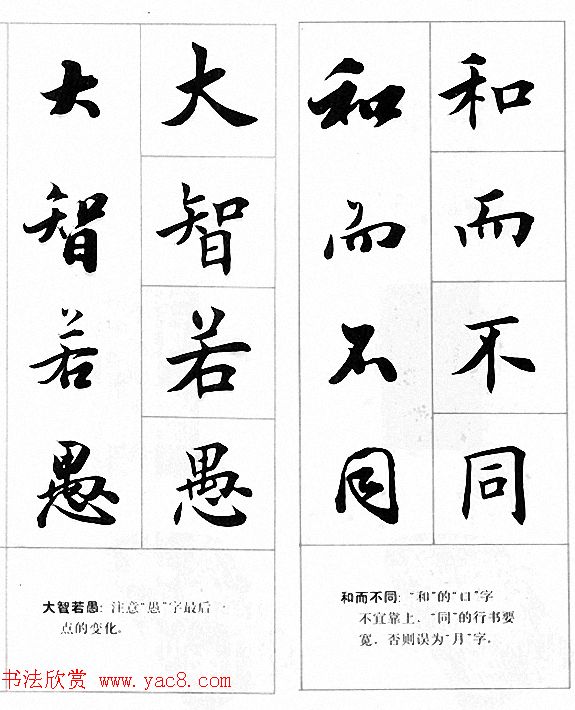 和而不同
和而不同
大智若愚
大智若愚
和而不同：“和”的“口”字
不宜靠上，“同”的行书要
宽，否则误为“月”字。
大智若愚：注意“愚”字最后一
点的变化。
书法欣赏 www.yac8.com